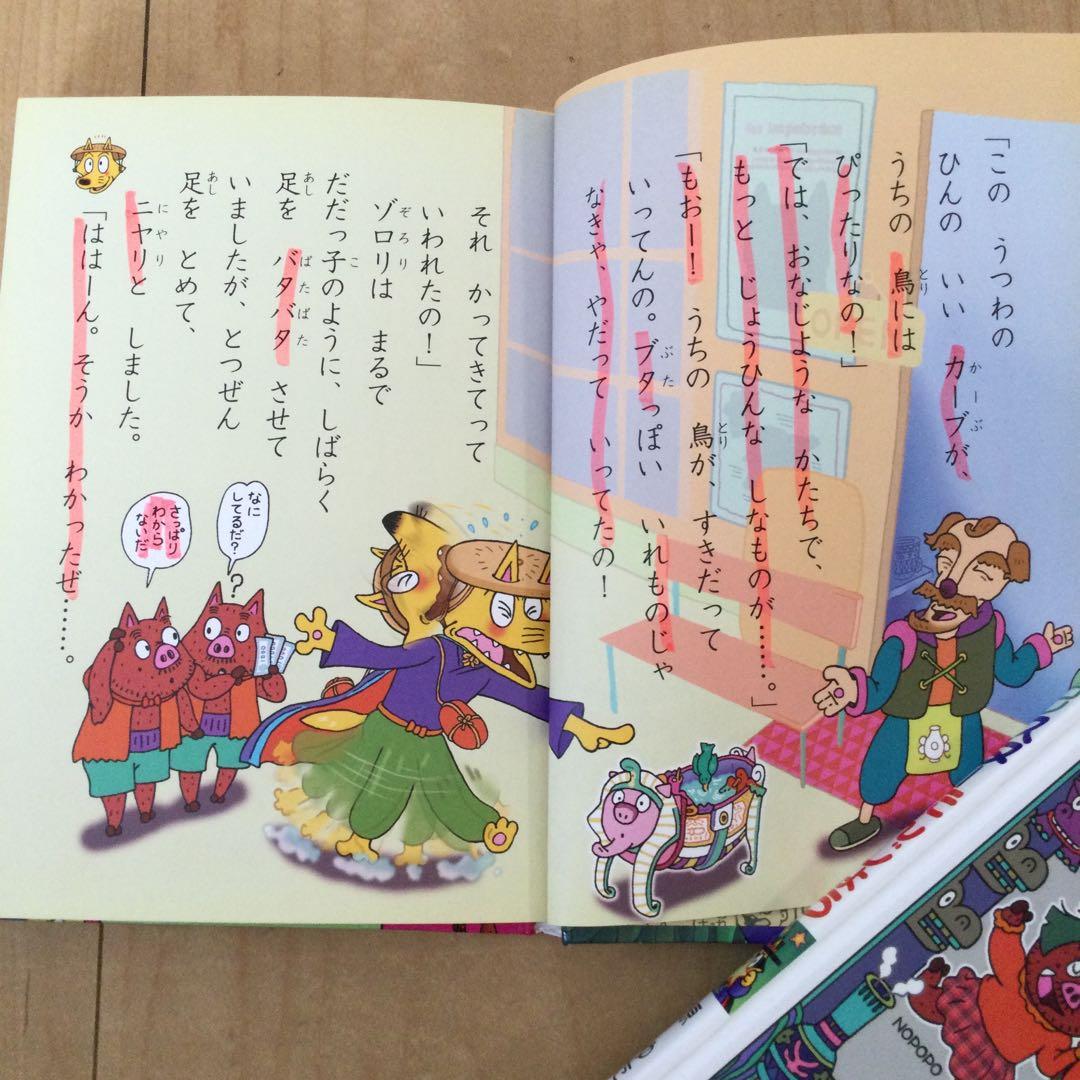 「この うつわの
ひんの いい カーブが、
かーぶ
うちの 鳥には
とり
ぴったりなの！」
「では、おなじような かたちで、
もっと じょうひんな しなものが……。」
「もおー！ うちの 鳥が、すきだって
とり
いってんの。ブタっぽい いれものじゃ
ぶた
なきゃ、やだって いってたの！
それ かってきてって
いわれたの！」
ゾロリは まるで
ぞろり
だだっ子のように、しばらく
こ
足を バタバタ させて
あし ばたばた
いましたが、とつぜん
足を とめて、
あし
ニヤリと しました。
にやり
「ははーん。そうか わかったぜ……。
なに
してるだ？
?
さっぱり
わから
ないだ
NOPOPO